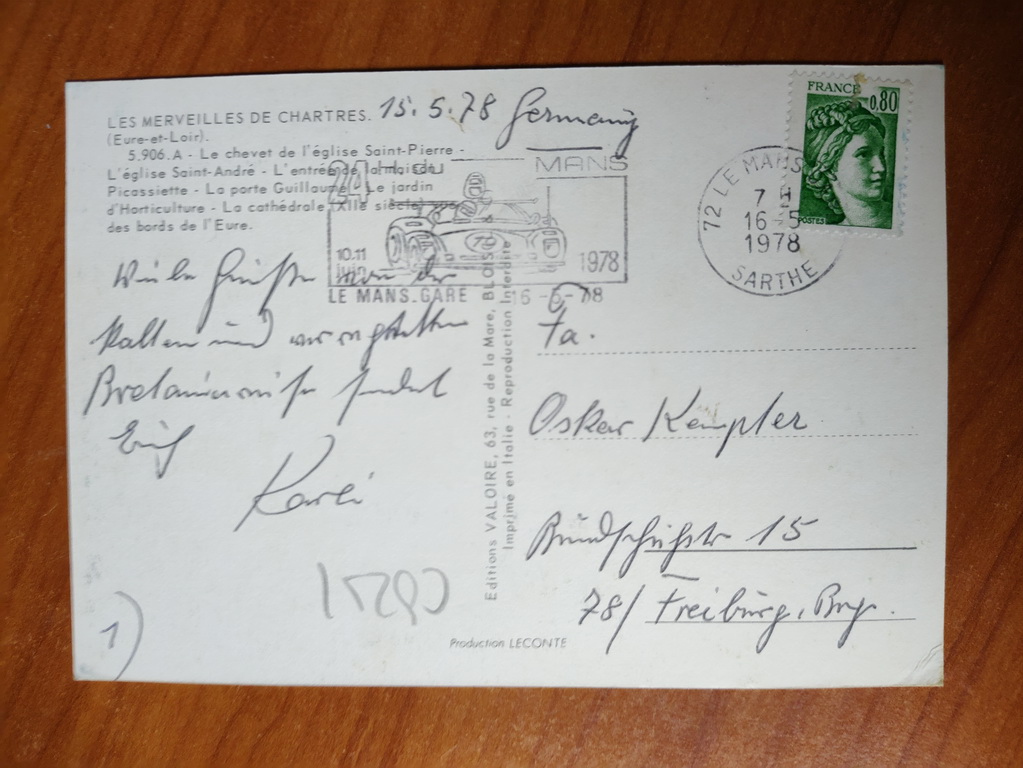 LES MERVEILLES DE CHARTRES.
(Eure-et-Loir).
5.906.A - Le chevet de l'église Saint-Pierre -
L'église Saint-André - L'entrée de la maison
Picassiette - La porte Guillaume - Le jardin
d'Horticulture - La cathédrale (XIIe siècle) vue
des bords de l'Eure.
15.5.78 Germany
24 H du MANS
10.11
JUIN
1978
LE MANS.GARE 16-5-78
72 LE MANS
7 H
16-5
1978
SARTHE
FRANCE 0,80
POSTES
Viele Grüße von der
kalten und
sendet
Euch
Karli
Editions VALOIRE, 63, rue de la Mare, BLOIS
Imprimé en Italie - Reproduction Interdite
Fa.
Oskar Kempter
Bundschuhstr 15
78/ Freiburg, Brg.
1)
Production LECONTE